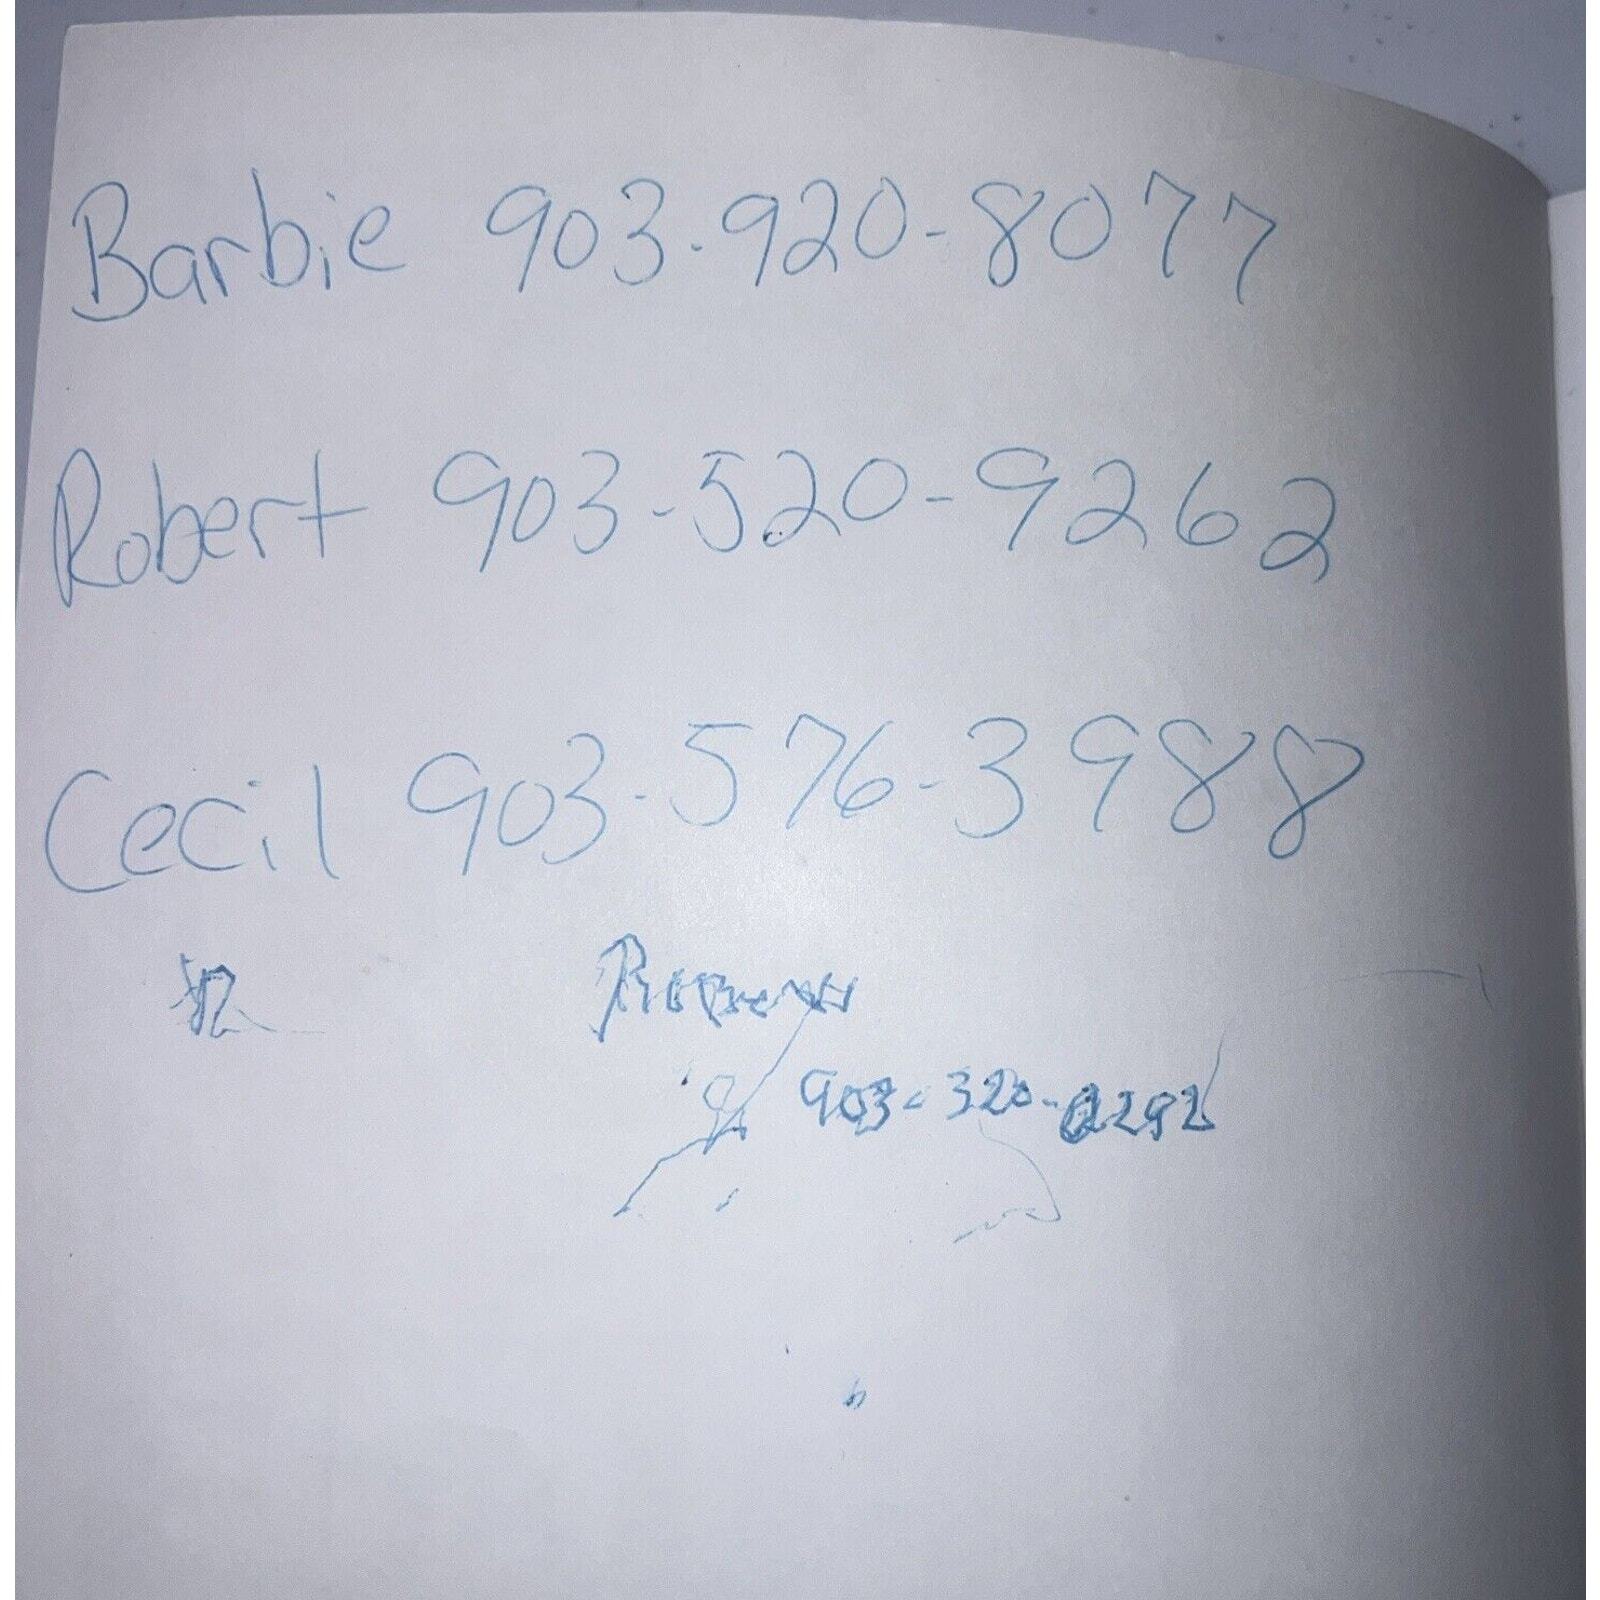 Barbie 903-920-8077
Robert 903-520-9262
Cecil 903-576-3988
903-320-